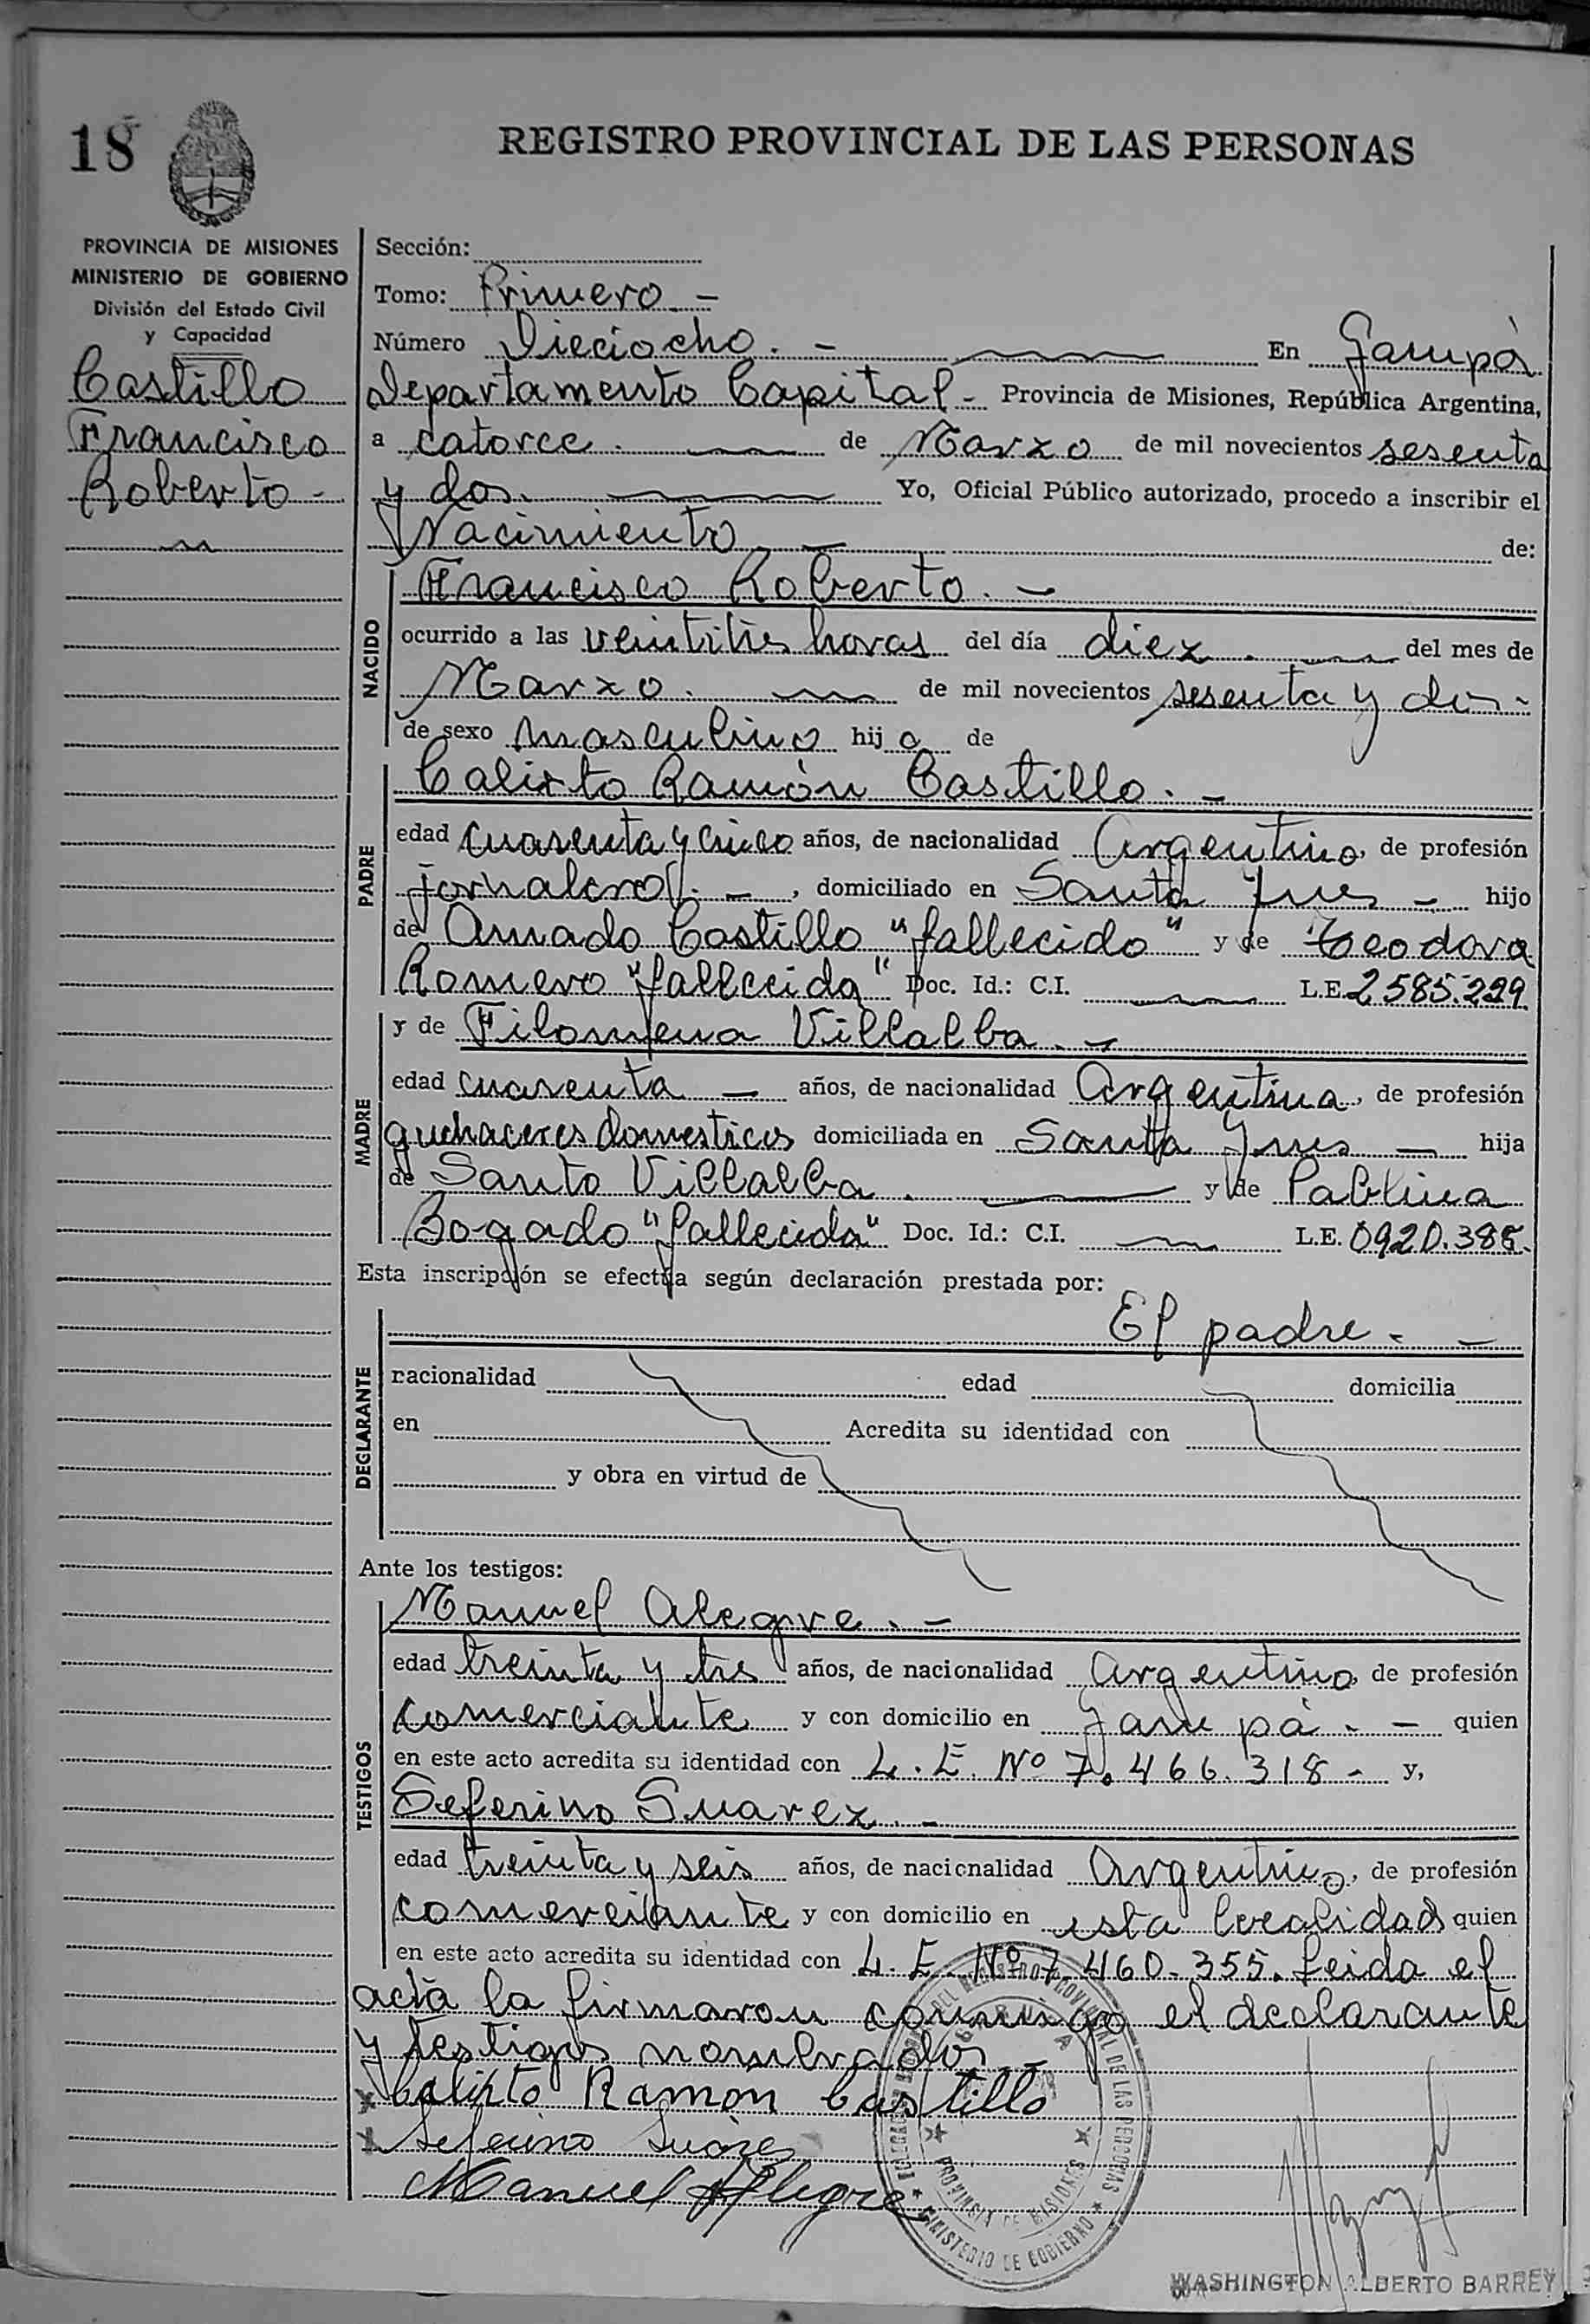 18
REGISTRO PROVINCIAL DE LAS PERSONAS
PROVINCIA DE MISIONES
MINISTERIO DE GOBIERNO
División del Estado Civil
y Capacidad
Castillo
Francisco
Roberto -
Sección:
Tomo: Primero. -
Número Dieciocho. - En Garupá
Departamento Capital - Provincia de Misiones, República Argentina,
a catorce. de Marzo de mil novecientos sesenta
y dos. Yo, Oficial Público autorizado, procedo a inscribir el
Nacimiento - de:
NACIDO
Francisco Roberto. -
ocurrido a las veintitrés horas del día diez. del mes de
Marzo. de mil novecientos sesenta y dos -
de sexo masculino hijo de
PADRE
Calixto Ramón Castillo. -
edad cuarenta y cinco años, de nacionalidad Argentino, de profesión
jornalero. -, domiciliado en Santa Ines - hijo
de Amado Castillo "fallecido" y de Teodora
Romero "fallecida" Doc. Id.: C.I. L.E. 2.585.229
MADRE
y de Filomena Villalba. -
edad cuarenta - años, de nacionalidad Argentina, de profesión
quehaceres domesticos domiciliada en Santa Ines - hija
de Santo Villalba. y de Pablina
Bogado "fallecida" Doc. Id.: C.I. L.E. 0920.385.
Esta inscripción se efectúa según declaración prestada por:
DECLARANTE
El padre. -
nacionalidad edad domicilia
en Acredita su identidad con
y obra en virtud de
Ante los testigos:
TESTIGOS
Manuel Alegre. -
edad treinta y tres años, de nacionalidad Argentino, de profesión
comerciante y con domicilio en Garupá. - quien
en este acto acredita su identidad con L. E. Nº 7.466.318 - y,
Seferino Suarez. -
edad treinta y seis años, de nacionalidad Argentino, de profesión
comerciante y con domicilio en esta localidad quien
en este acto acredita su identidad con L. E. Nº 7.460.355. Leida el
acta la firmaron conmigo el declarante
y testigos nombrados. -
Calixto Ramón Castillo
Seferino Suarez
Manuel Alegre
DEL REGISTRO PROVINCIAL DE LAS PERSONAS
GARUPA
PROVINCIA DE MISIONES
MINISTERIO DE GOBIERNO
WASHINGTON ALBERTO BARREY